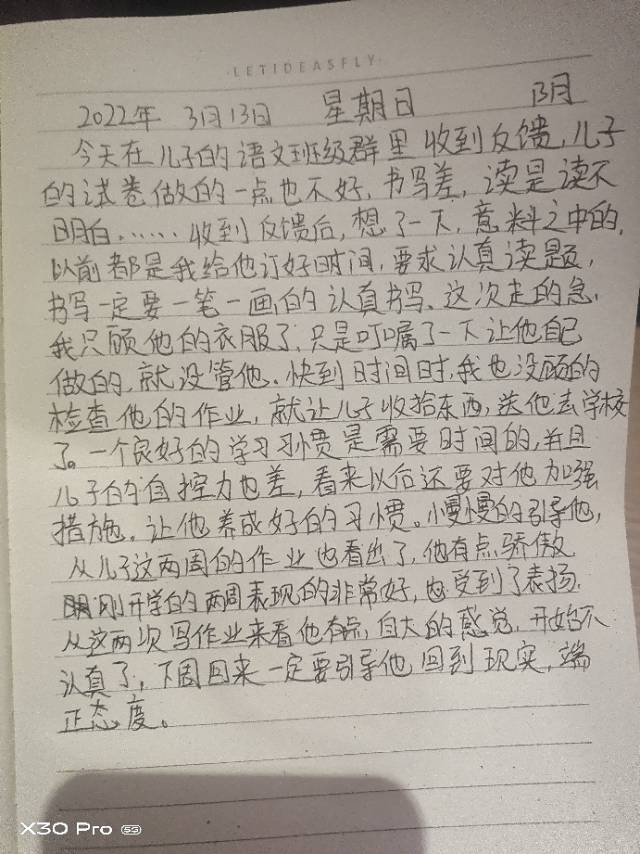 ·LETIDEASFLY·
2022年 3月13日 星期日 阴
今天在儿子的语文班级群里收到反馈,儿子
的试卷做的一点也不好,书写差,读是读不
明白……收到反馈后,想了一下,意料之中的,
以前都是我给他订好时间,要求认真读题,
书写一定要一笔一画的认真书写、这次走的急,
我只顾他的衣服了,只是叮嘱了一下让他自己
做的,就没管他.快到时间时,我也没顾的
检查他的作业,就让儿子收拾东西,送他去学校
了。一个良好的学习习惯是需要时间的,并且
儿子的自控力也差,看来以后还要对他加强
措施.让他养成好的习惯。慢慢的引导他,
从儿子这两周的作业也看出了,他有点骄傲
刚开学的两周表现的非常好,也受到了表扬.
从这两次写作业来看他有点,自大的感觉,开始不
认真了,下周回来一定要引导他回到现实,端
正态度。
X30 Pro 5G